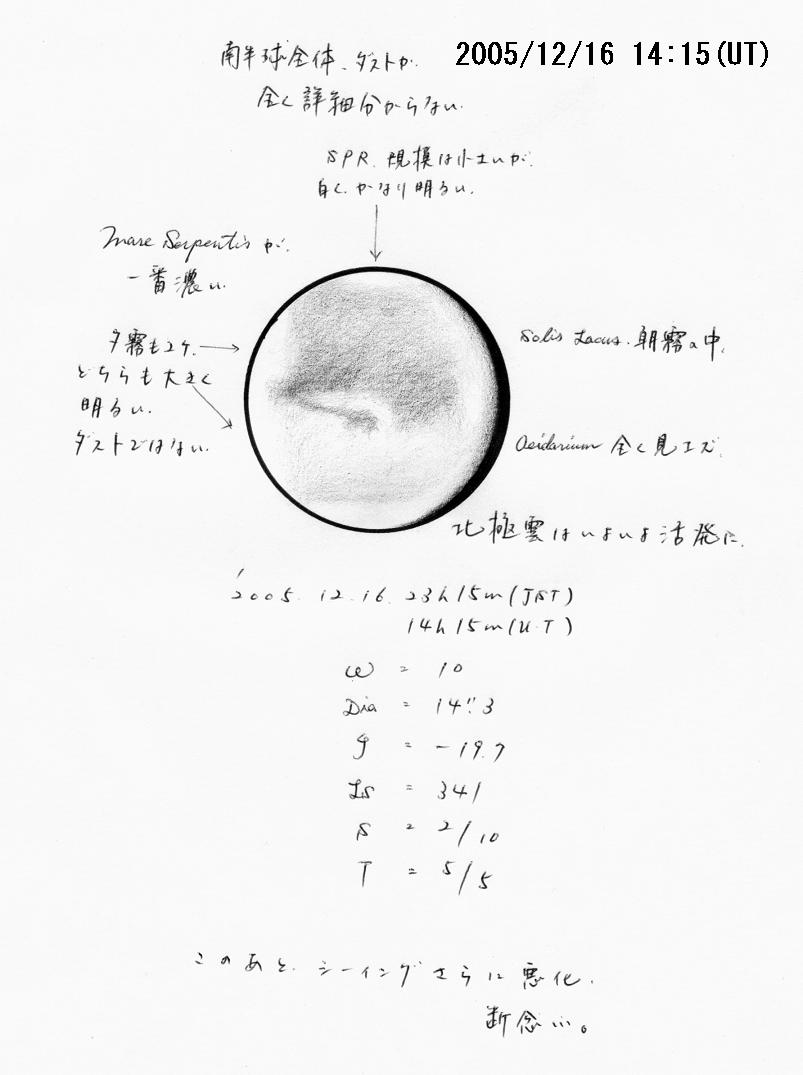 2005/12/16 14:15(UT)
南半球全体、ダストか.
全く詳細分からない.
SPR. 規模は小さいが.
白く.かなり明るい.
Mare Serpentis が.
一番濃い.
夕霧も2ケ.
どちらも大きく
明るい.
ダストではない.
Solis Lacus. 朝霧の中.
Acidarium 全く見エズ.
北極雲はいよいよ活発に.
'2005. 12. 16. 23h15m(JST)
14h15m(U.T)
ω = 10
Dia = 14".3
= -19.7
Ls = 341
S = 2/10
T = 5/5
このあと.シーイングさらに悪化.
断念…。